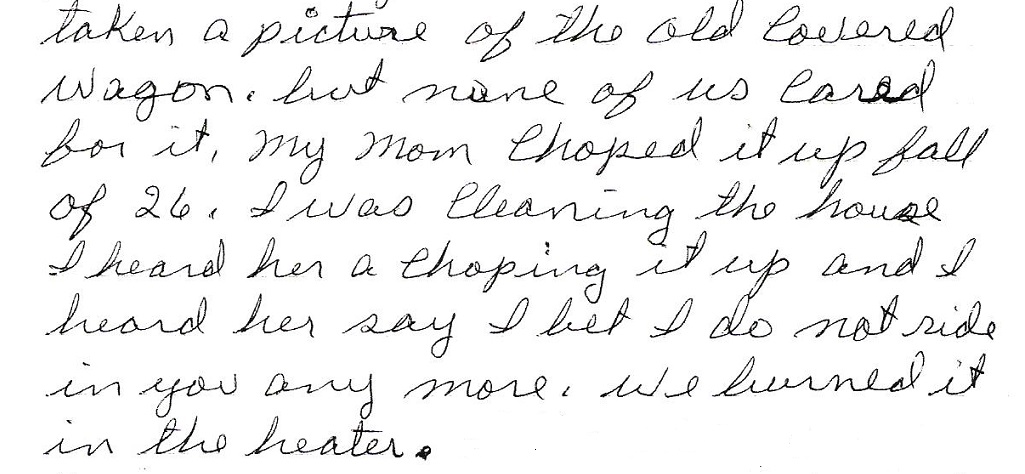 taken a picture of the old covered
wagon. but none of us cared
for it, my mom choped it up fall
of 26. I was cleaning the house
I heard her a choping it up and I
heard her say I bet I do not ride
in you any more. we burned it
in the heater.